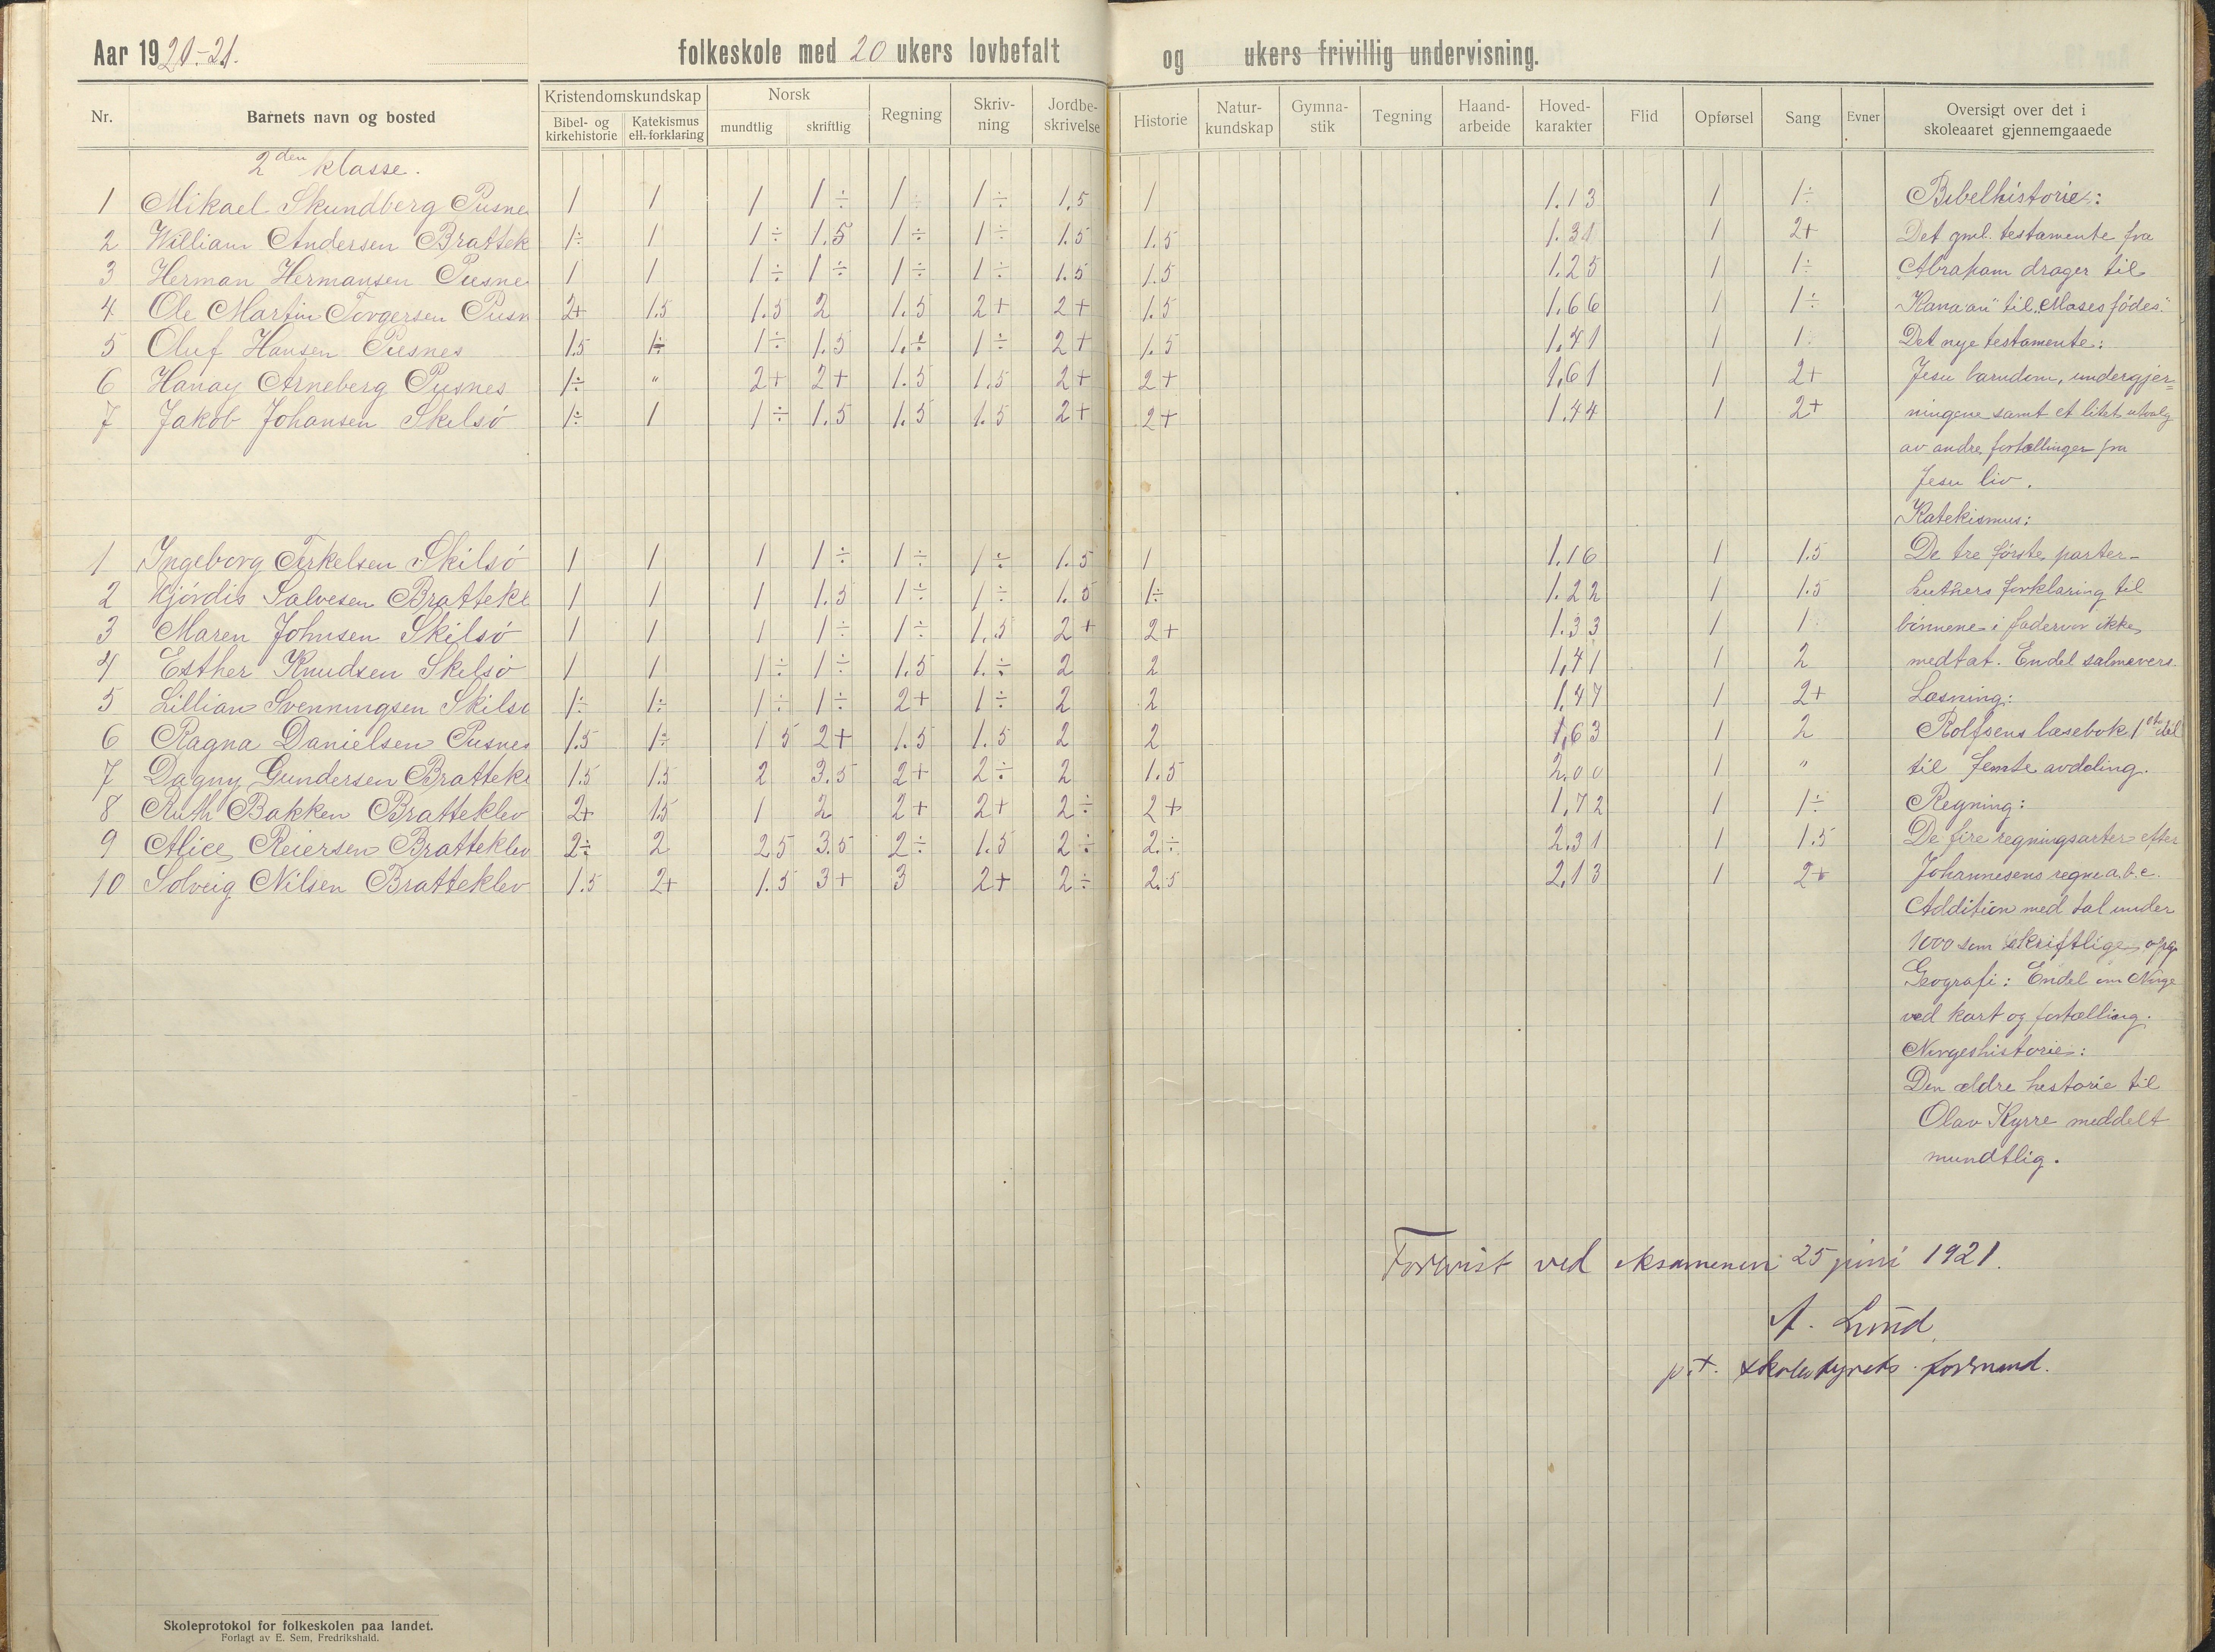 Aar 1920-21. folkeskole med 20 ukers lovbefalt og ukers frivillig undervisning.
Nr. Barnets navn og bosted Kristendomskundskap Norsk Regning Skriv-ning Jordbe-skrivelse Historie Natur-kundskap Gymna-stik Tegning Haand-arbeide Hoved-karakter Flid Opførsel Sang Evner Oversigt over det i skoleaaret gjennemgaaede
Bibel- og kirkehistorie Katekismus ell. forklaring mundtlig skriftlig
2den klasse.
1 Mikael Skundberg Pusne 1 1 1 1÷ 1 1÷ 1.5 1 1.13 1 1÷ Bibelhistorie:
2 William Andersen Brattek 1÷ 1 1÷ 1.5 1÷ 1÷ 1.5 1.5 1.31 1 2+ Det gml. testamente fra
3 Herman Hermansen Pusne 1 1 1÷ 1÷ 1÷ 1÷ 1.5 1.5 1.25 1 1÷ Abraham drager til
4 Ole Martin Torgersen Pusn 2+ 1.5 1.5 2 1.5 2+ 2+ 1.5 1.66 1 1÷ Kana'an" til "Moses födes."
5 Oluf Hansen Pusnes 1.5 1÷ 1÷ 1.5 1.÷ 1÷ 2+ 1.5 1.41 1 1 Det nye testamente:
6 Hanay Arneberg Pusnes 1÷ " 2+ 2+ 1.5 1.5 2+ 2+ 1,61 1 2+ Jesu barndom, undergjer=
7 Jakob Johansen Skilsö 1÷ 1 1÷ 1.5 1.5 1.5 2+ 2+ 1.44 1 2+ ningene samt et litet utvalg
av andre fortællinger fra
Jesu liv.
Katekismus:
1 Ingeborg Terkelsen Skilsö 1 1 1 1÷ 1÷ 1÷ 1.5 1 1.16 1 1.5 De tre første parter-
2 Hjördis Salvesen Brattekl 1 1 1 1.5 1÷ 1÷ 1.5 1÷ 1.22 1 1.5 Luthers forklaring til
3 Maren Johnsen Skilsö 1 1 1 1÷ 1÷ 1.5 2+ 2+ 1.33 1 1 bönnene i fadervor ikke
4 Esther Knudsen Skilsö 1 1 1÷ 1÷ 1.5 1.÷ 2 2 1,41 1 2 medtat. Endel salmevers.
5 Lillian Svenningsen Skilsö 1÷ 1÷ 1÷ 1÷ 2+ 1÷ 2 2 1,47 1 2+ Læsning:
6 Ragna Danielsen Pusnes 1.5 1÷ 1 5 2+ 1.5 1.5 2 2 1,63 1 2 Rolfsens læsebok 1ste del
7 Dagny Gundersen Brattekl 1.5 1.5 2 3.5 2+ 2÷ 2 1.5 2.00 1 " til femte avdeling.
8 Ruth Bakken Bratteklev 2+ 1.5 1 2 2+ 2+ 2÷ 2+ 1,72 1 1÷ Regning:
9 Alice Reiersen Bratteklev 2÷ 2 2.5 3.5 2÷ 1.5 2÷ 2.÷ 2.31 1 1.5 De fire regningsarter efter
10 Solveig Nilsen Bratteklev 1.5 2+ 1.5 3+ 3 2+ 2÷ 2.5 2,13 1 2+ Johannesens regne a.b.c.
Addition med tal under
1000 som skriftlige opg.
Geografi: Endel om Norge
ved kart og fortælling.
Norgeshistorie:
Den ældre historie til
Olav Kyrre meddelt
mundtlig.
Forevist ved eksamenen 25 juni 1921.
A. Lund
p.t. skolestyrets formand.
Skoleprotokol for folkeskolen paa landet.
Forlagt av E. Sem, Fredrikshald.